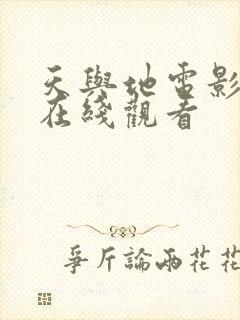 天與地電影
在綫觀看
爭斤論兩花花